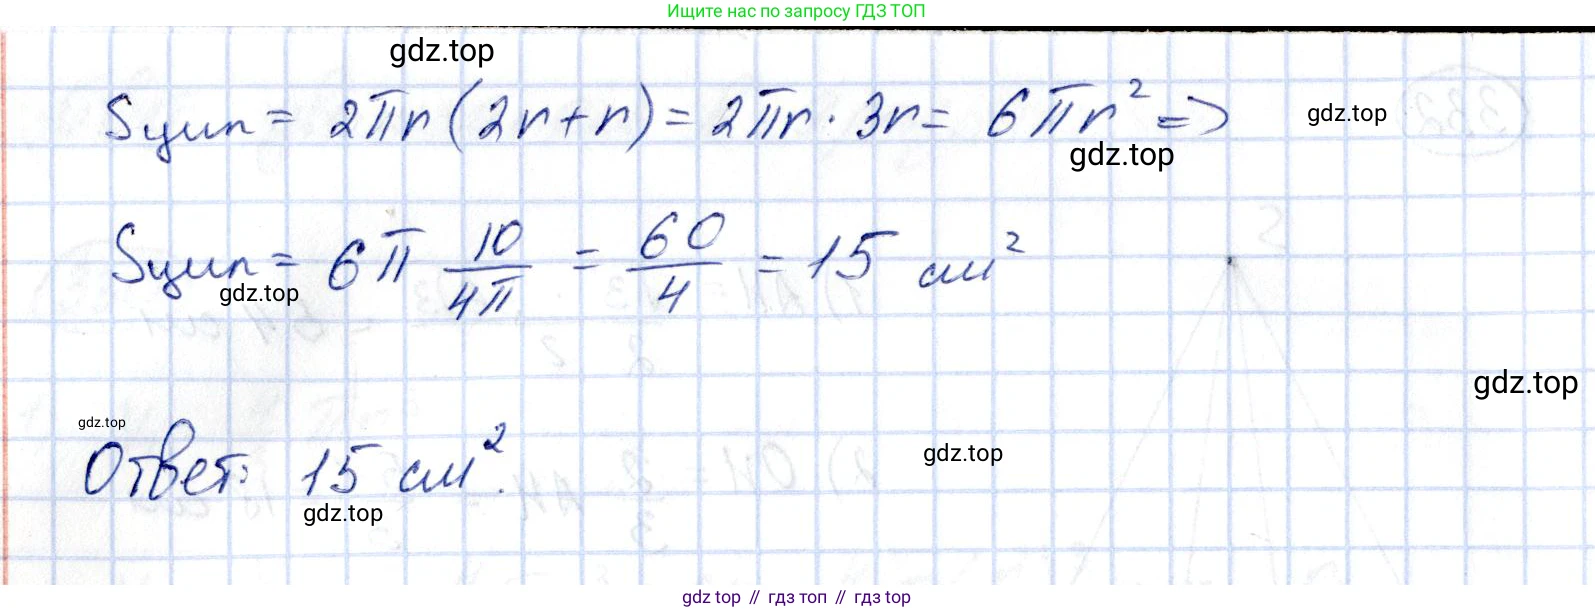 Ищите нас по запросу ГДЗ ТОП
gdz.top
Sцил = 2πr(2r+r) = 2πr · 3r = 6πr² =>
gdz.top
gdz.top
Sцил = 6π 10/4π = 60/4 = 15 см²
gdz.top
gdz.top
gdz.top
Ответ: 15 см².
gdz.top
gdz.top
gdz top // гдз топ // gdz top